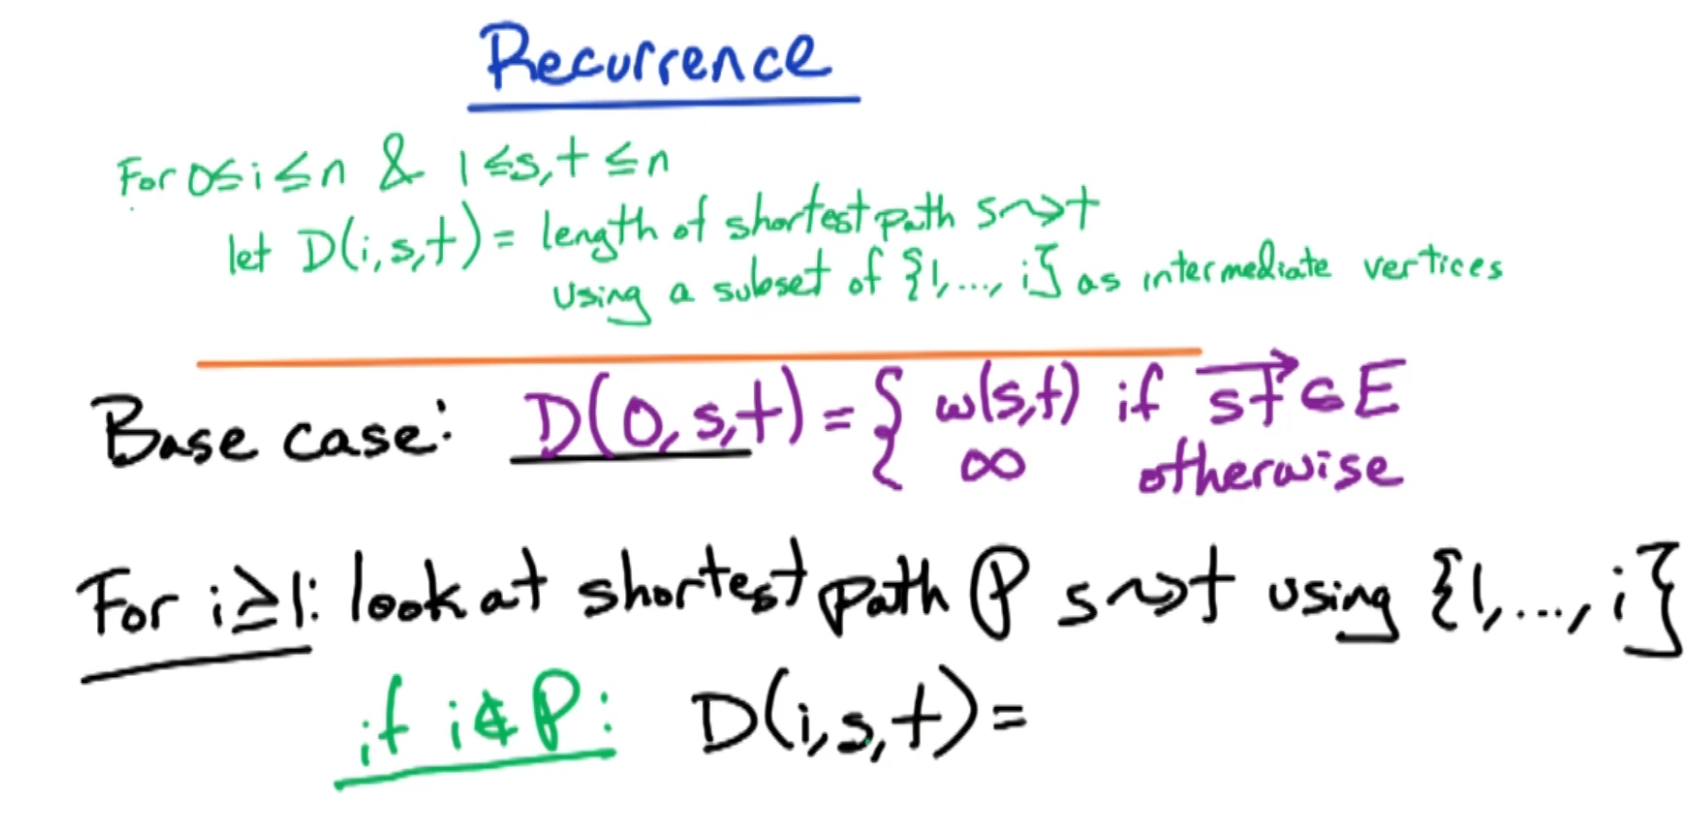 Recurrence
For 0≤i≤n & 1≤s,t≤n
let D(i,s,t) = length of shortest path s⇝t
using a subset of {1,...,i} as intermediate vertices
Base case: D(0,s,t) = { w(s,t) if st→ ∈ E
∞ otherwise
For i≥1: look at shortest path P s⇝t using {1,...,i}
if i∉P: D(i,s,t) =